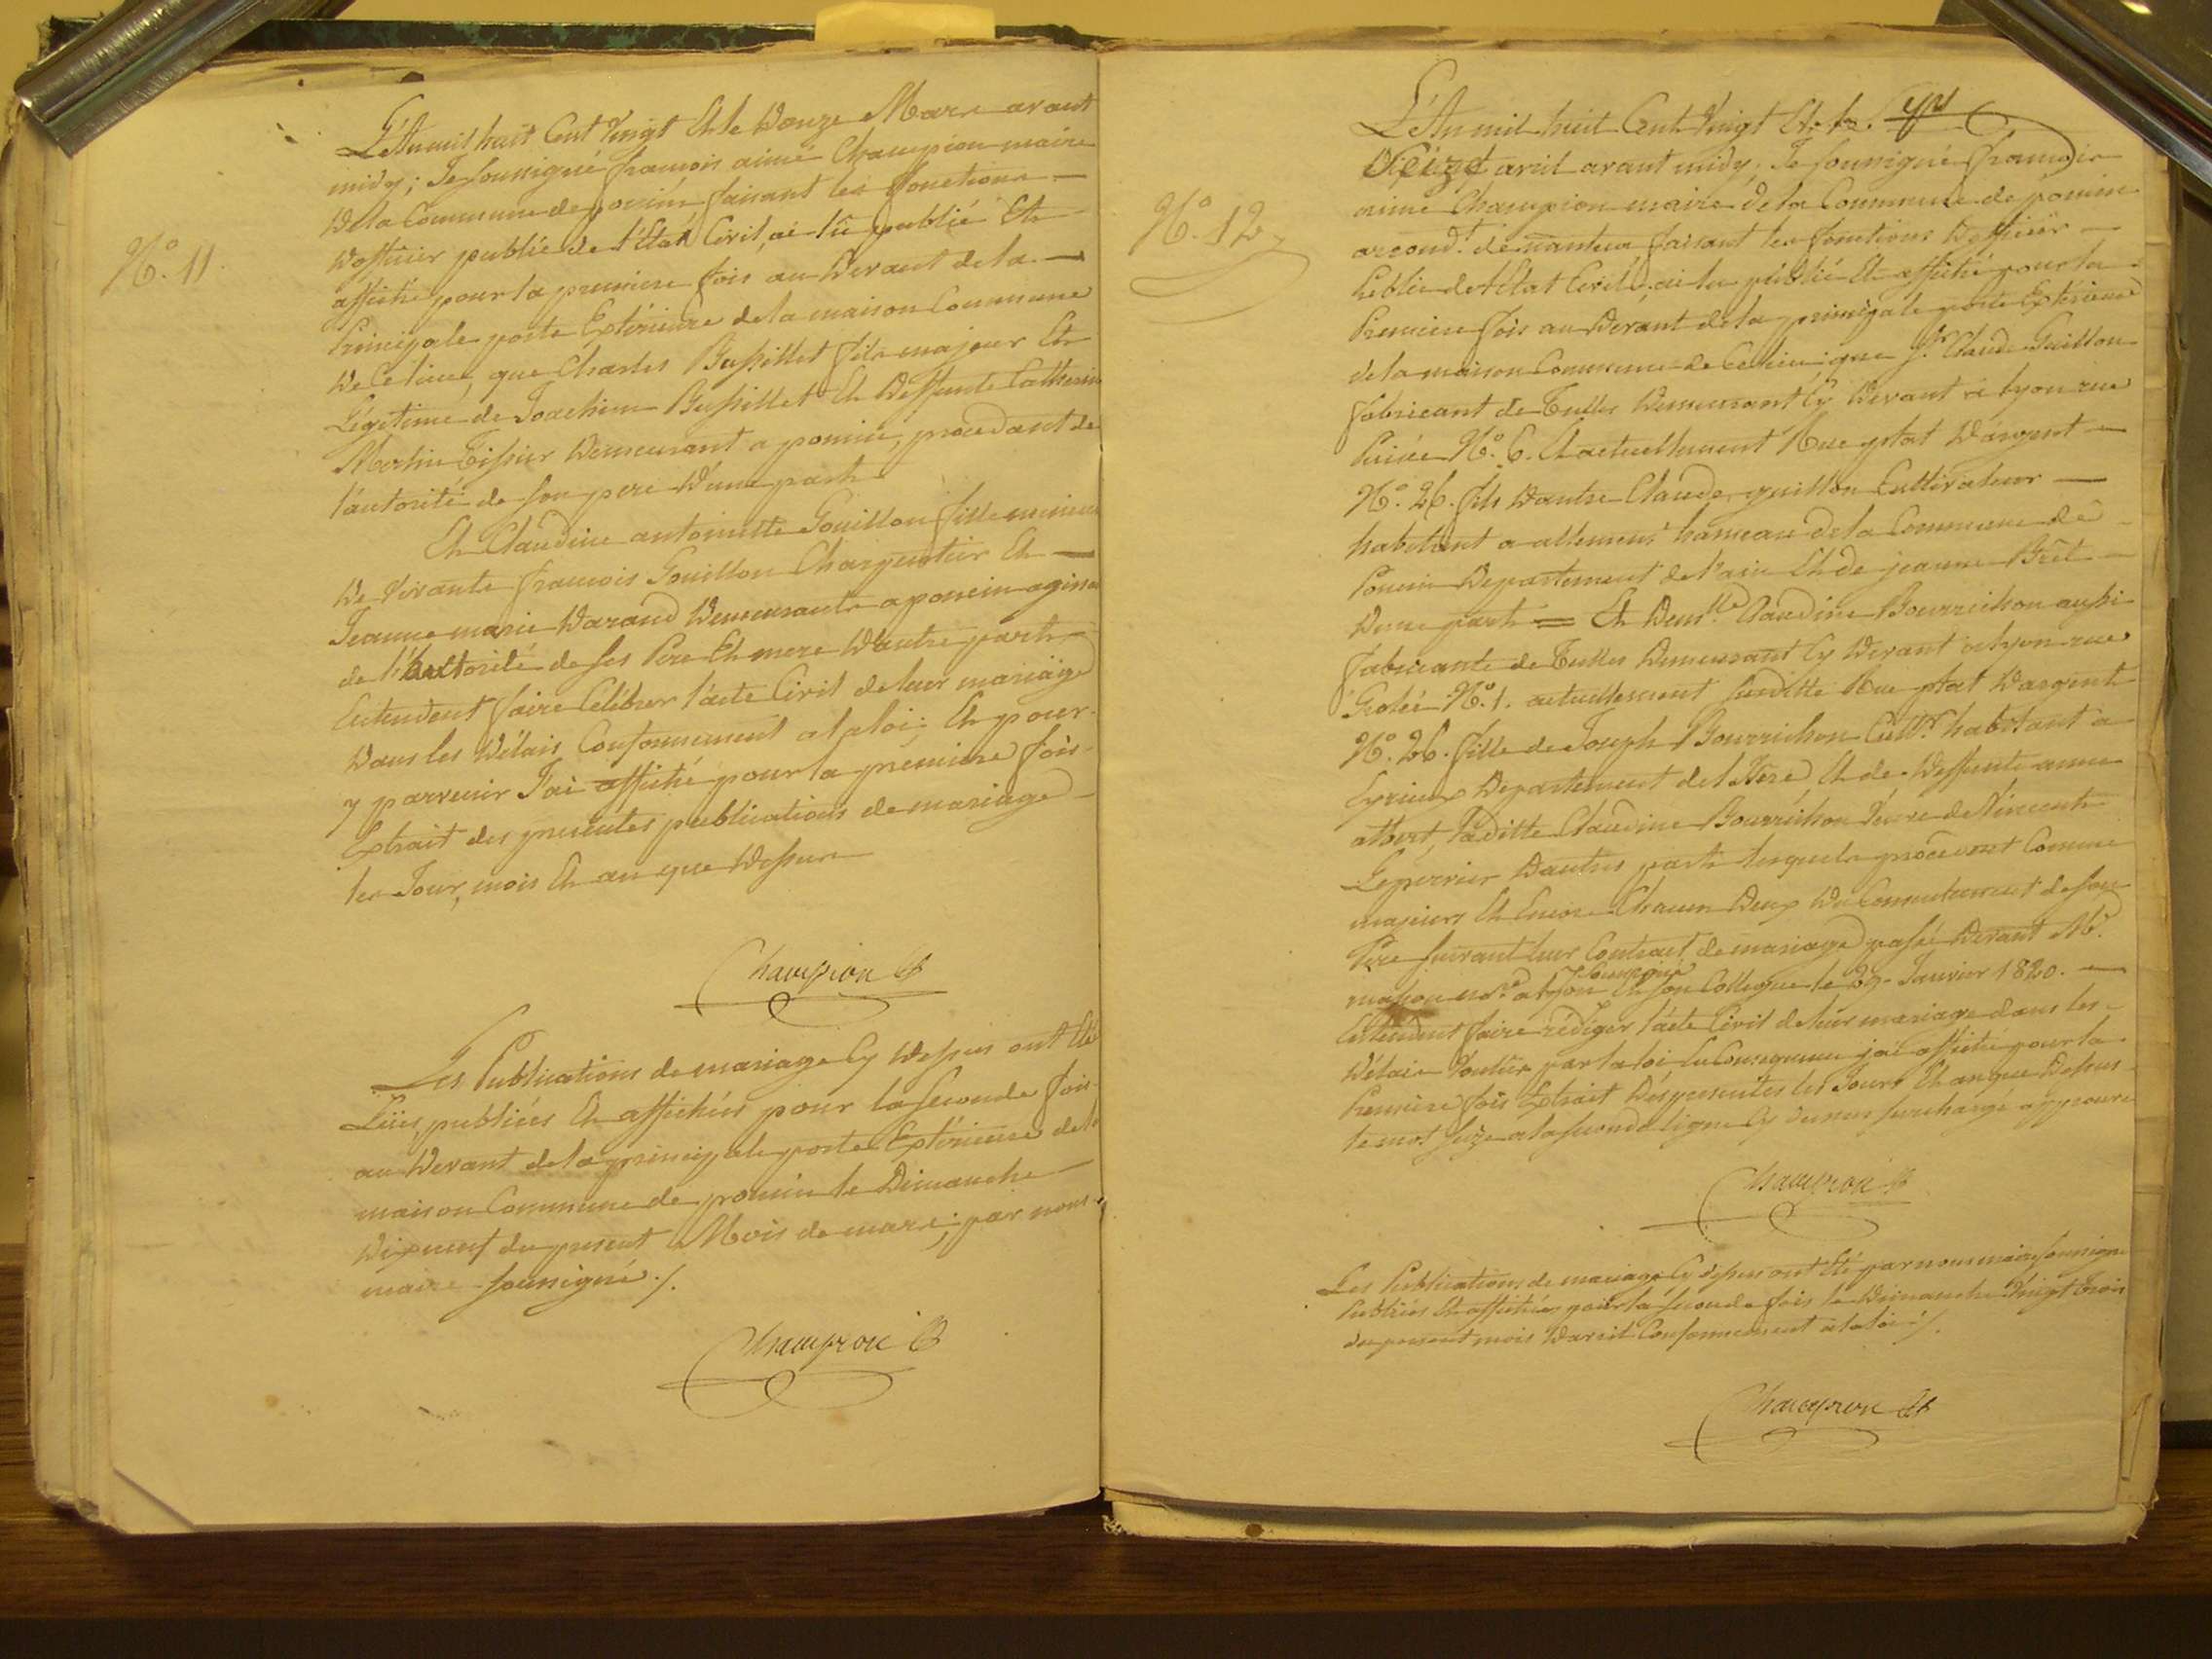 N.° 11.
L'An mil huit Cent Vingt Et le Douze Mars avant
midy; Je soussigné francois aimé Champion maire
De la Commune de poncin faisant les fonctions
D'officier public de l'Etat Civil, ai lû publié Et
affiché pour la premiere fois au Devant de la
Principale porte Extérieure de la maison Commune
De Ce lieu, que Charles Bussillet fils majeur Et
Légitime de Joachim Bussillet Et Deffunte Catherine
Tissier Demeurant a poncin, procedant de
l'autorité de son pere D'une part
Et Claudine antoinette Gouillon fille mineure
De Vivants francois Gouillon Charpentier Et
Jeanne marie Darand Demeurants a poncin agissant
de l'autorité de ses Pere Et mere D'autre part
Entendent faire Célébrer l'acte Civil de leur mariage
Dans les Délais Conformement a la loi; Et pour
y parvenir J'ai affiché pour la premiere fois
Extrait des presentes publications de mariage
les Jour, mois Et an que Dessus
Champion
Les Publications de mariage Cy Dessus ont Eté
Lües, publiées Et affichées pour la Seconde fois
au Devant de la principale porte Extérieure de la
maison Commune de poncin le Dimanche
Dixneuf du present Mois de mars, par nous
maire soussigné ./.
Champion
N.° 12
L'An mil huit Cent Vingt Et le
Seize avril avant midy, Je soussigné francois
aimé Champion maire de la Commune de poncin
arrond.t de nantua faisant les fonctions D'officier
Public de l'Etat Civil, ai lu publié Et affiché pour la
Premiere fois au Devant de la principale porte Extérieure
de la maison Commune de Ce lieu que S.r Claude Guillon
fabricant de Tulles Demeurant Cy Devant a lyon rue
N.° 6. Et actuellement Rue plat D'argent
N.° 26. fils D'autre Claude guillon Cultivateur
habitant a allement hameau de la Commune de
Poncin Departement de l'ain Et de jeanne Brêt
D'une part = Et Dem.lle Claudine Bourrichon aussi
fabricante de Tulles Demeurant Cy Devant a lyon rue
Grolée N.° 1. actuellement susditte Rue plat D'argent
N.° 26. fille de Joseph Bourrichon Cult.r habitant a
Eyrieux Departement de l'Isère, Et de Deffunte anne
albert, laditte Claudine Bourrichon Veuve de Vincent
Leperrier D'autre part lesquels procedent Comme
majeurs Et Encore Chacun Deux du Consentement de son
Pere suivant leur Contrat de mariage passé Devant M.e
not.re a lyon Et son Collegue le 29 Janvier 1820.
Entendent faire rédiger l'acte Civil de leur mariage dans les
Délais Voulus par la loi, En Consequence j'ai affiché pour la
Premiere fois Extrait Des presentes les Jours Et an que Dessus
le mot seize a la seconde ligne Cy dessus surchargé approuvé
Champion
Les Publications de mariage Cy dessus ont Eté par nous maire soussigné
Publiées Et affichées pour la seconde fois le Dimanche Vingt trois
du present mois D'avril Conformement a la loi ./.
Champion